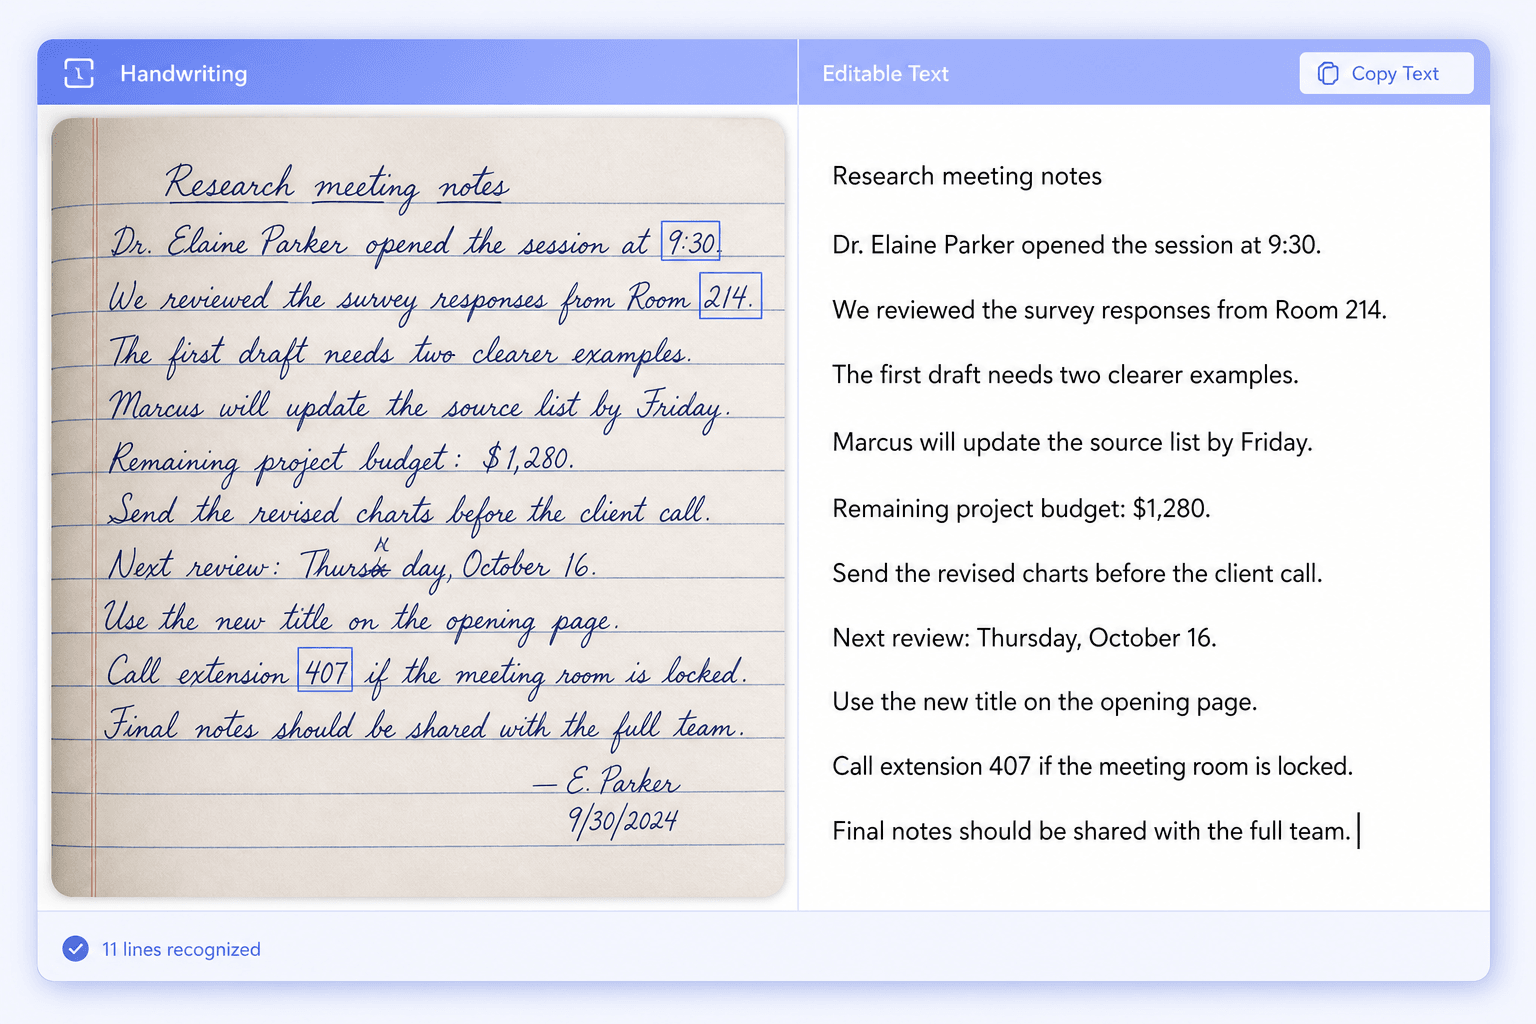 Handwriting
Research meeting notes
Dr. Elaine Parker opened the session at 9:30.
We reviewed the survey responses from Room 214.
The first draft needs two clearer examples.
Marcus will update the source list by Friday.
Remaining project budget: $1,280.
Send the revised charts before the client call.
Next review: Thurs day, October 16.
Use the new title on the opening page.
Call extension 407 if the meeting room is locked.
Final notes should be shared with the full team.
— E. Parker
9/30/2024
Editable Text
Copy Text
Research meeting notes
Dr. Elaine Parker opened the session at 9:30.
We reviewed the survey responses from Room 214.
The first draft needs two clearer examples.
Marcus will update the source list by Friday.
Remaining project budget: $1,280.
Send the revised charts before the client call.
Next review: Thursday, October 16.
Use the new title on the opening page.
Call extension 407 if the meeting room is locked.
Final notes should be shared with the full team.
11 lines recognized